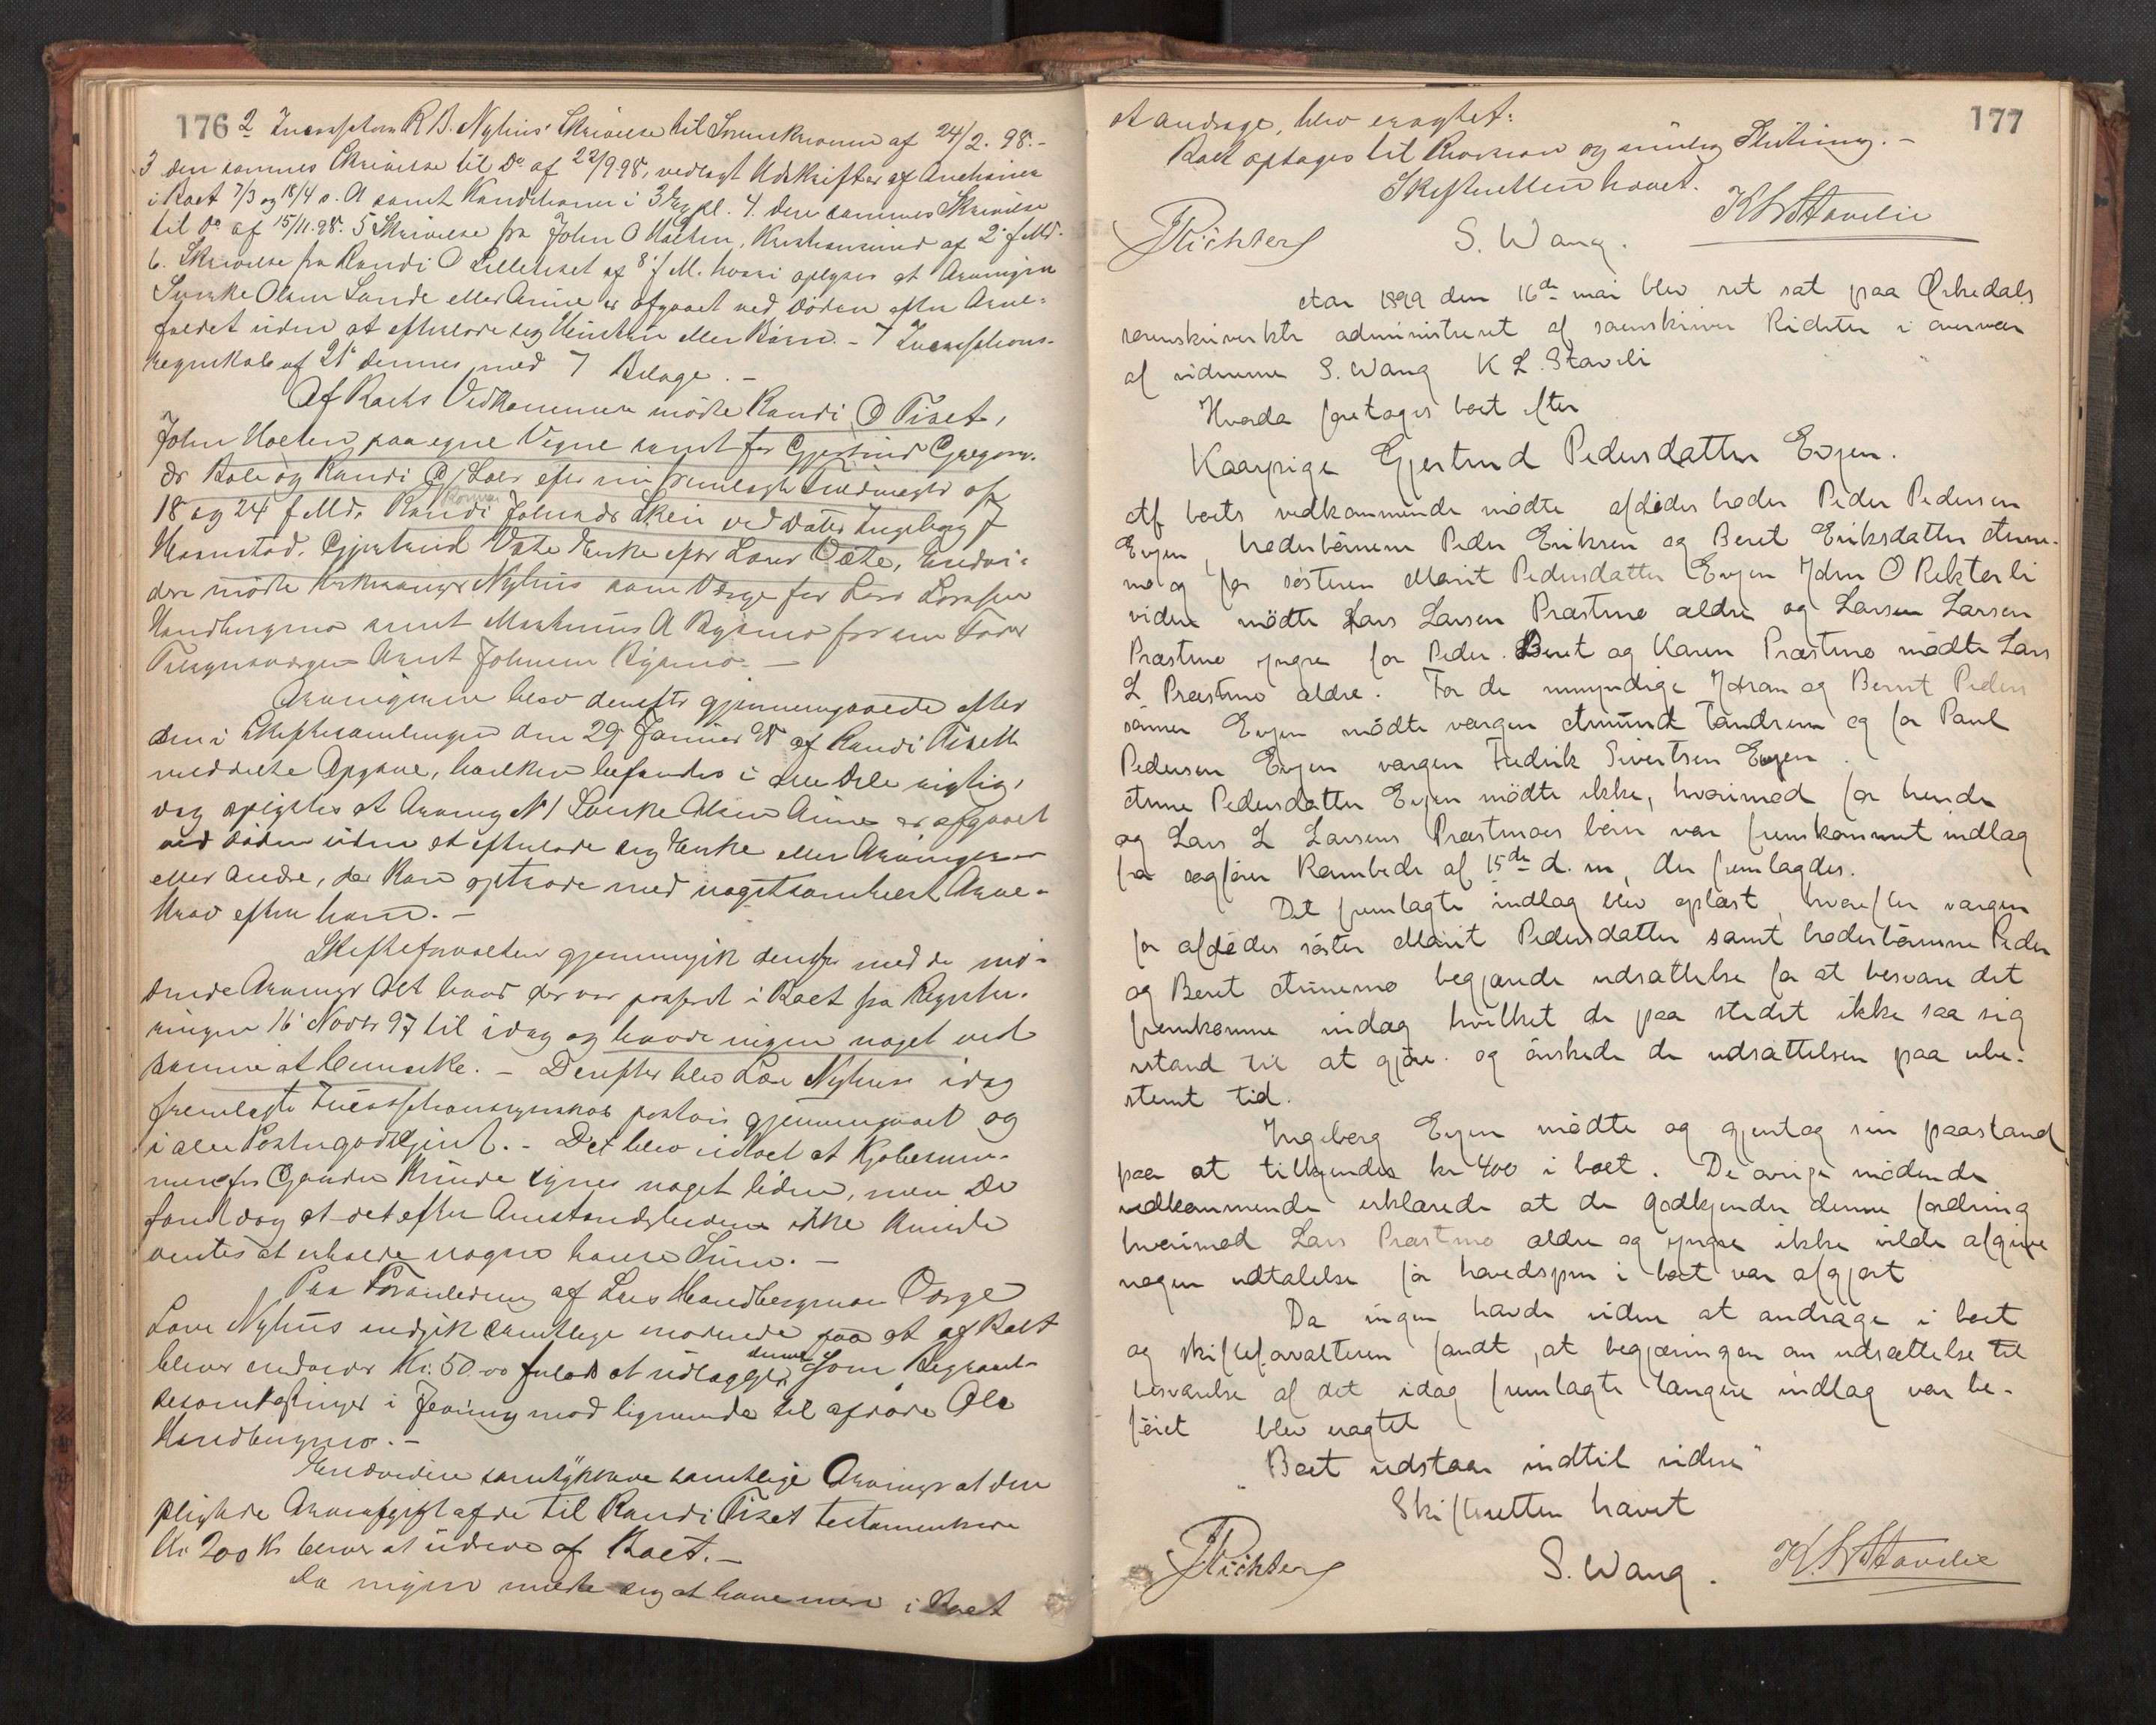 176
2 Incassators R B. Nyhus' Skrivelse til Sorenskriveren af 24/2. 98. -
3 den sammes Skrivelse til Do af 22/9 98, vedlagt Udskrifter af Auctioner
i Boet 7/3 og 18/4 s. A samt Konditioner i 3 Expl. 4. den sammes Skrivelse
til Do af 15/11. 98. 5 Skrivelse fra John O Moeten, Kristiansund af 2' f Md.
6. Skrivelse fra Randi O Lilletiset af 8' f M. hvori oplyses at Arvingen
Olsen Sande eller Aune er afgaaet ved Døden efter Arve-
faldet uden at efterlade sig eller Børn. - 7 Incassations-
regnskab af 21' dennes med 7 Bilage. -
Af Boets Vedkommende mødte Randi O Tiset,
John Moeten paa egne Vegne samt for Gjertrud Gregors.
dr Bole og Randi efter fremlagte Fuldmagter af
18 og 24 f Md. Randi Johnsdr Skei ved Datter Ingeborg J
Gjertrud Væte Enke efter Lars Væte, Endvi-
dere mødte Nyhus som Værge for Lars Larssen
Handbergmo samt A Byemo for sin Fader
Arnt Johnsen Byemo. -
Arvingerne blev derefter gjennemgaaede efter
den i Skiftesamlingen den 29 Januar 98 af Randi Tiseth
meddelte Opgave, hvilken befandtes i alle Dele rigtig,
dog oplystes at Arving No 1 Olsen Aune er afgaaet
ved Døden uden at efterlade sig Enke eller Arvinger
eller Andre, der kan optræde med nogetsomhelst Arve-
krav efter ham. -
Skifteforvalteren gjennemgik derefter med de mø-
dende Arvinger Alt hvad der var passeret i Boet fra Registe-
ringen 16' Novbr 97 til idag og havde ingen noget ved
samme at bemærke. - Derefter blev Nyhus idag
fremlagte Incassationsregnskab postvis gjennemgaaet og
i alle Poster godkjent. - Det blev udtalt at Kjøbesum-
men for Gaarden kunde synes noget liden, men De
fandt dog at det efter Omstændighederne ikke kunde
ventes at erholde nogen høiere Sum. -
Paa Foranledning af Lars Handbergmoes Værge
Nyhus indgik samtlige mødende paa at af Boet
bliver endvidere Kr. 50.00 at udlægge denne som Begravel-
sesomkostninger i mod lignende til afdøde Ole
Handbergmo. -
Endvidere samtykkede samtlige Arvinger at den
pligtige Arveafgift af de til Randi Tiset testamenterede
Kr 200 Kr bliver at udrede af Boet. -
Da ingen meldte sig at have mere i Boet
177
at andrage, blev eragtet:
Boet optages til Revision og mulig Slutning. -
Skifteretten hævet.
Richter S. Wang. K L Stavlie
Aar 1899 den 16de mai blev ret sat paa Ørkedals
sorenskriverktr administreret af sorenskriver Richter i overvær
af vidnerne S. Wang K L. Stavli
Hvorda foretoges boet efter
Kaarpige Gjertrud Pedersdatter Evjen.
Af boets vedkommende mødte afdødes broder Peder Pedersen
Evjen, broderbørnene Peder Eriksen og Beret Eriksdatter Aune-
mo og for søsteren Marit Pedersdatter Evjen John O Rekterli
videre mødte Lars Larsen Præstmo ældre og Larsen Larsen
Præstmo yngre for Peder. Beret og Karen Præstmo mødte Lars
L Præstmo ældre. For de umyndige Johan og Bernt Peders
sønner Evjen mødte værgen Amund Tandrem og for Paul
Pedersen Evjen værgen Fredrik Sivertsen Evjen.
Anne Pedersdatter Evjen mødte ikke, hvorimod for hende
og Lars L Larsens Præstmoes børn var fremkommet indlæg
fra sagfører Rambech af 15de d. m, der fremlagdes.
Det fremlagte indlæg blev oplæst, hvorefter værgen
for afdødes søster Marit Pedersdatter samt broderbørnene Peder
og Beret Aunemo begjærede udsættelse for at besvare det
fremkomne indlæg hvilket de paa stedet ikke saa sig
istand til at gjøre. og ønskede de udsættelsen paa ube-
stemt tid.
Ingeborg Evjen mødte og gjentog sin paastand
paa at tilkjendes kr 400 i boet. De øvrige mødende
vedkommende erklærede at de godkjender denne fordring
hvorimod Lars Præstmo ældre og yngre ikke vilde afgive
nogen udtalelse før hovedspm i boet var afgjort
Da ingen havde videre at andrage i boet
og skifteforvalteren fandt, at begjæringen om udsættelse til
besvarelse af det idag fremlagte længere indlæg var be-
føiet blev eragtet
"Boet udstaar indtil videre"
Skifteretten hævet
Richter S. Wang. K. L Stavlie